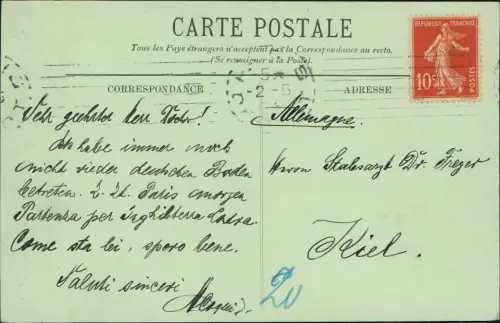 CARTE POSTALE
Tous les Pays étrangers n'acceptent pas la Correspondance au recto.
(Se renseigner à la Poste).
REPUBLIQUE FRANÇAISE
10c
POSTES
CORRESPONDANCE
ADRESSE
5
2-5
Sehr geehrter Herr Doctor!
Ich habe immer noch
nicht wieder deutschen Boden
betreten. Z. Zt. Paris morgen
Partenza per Inghilterra
Come sta lei, spero bene.
Saluti sinceri
Allemagne.
Herrn Dr.
Kiel.
20